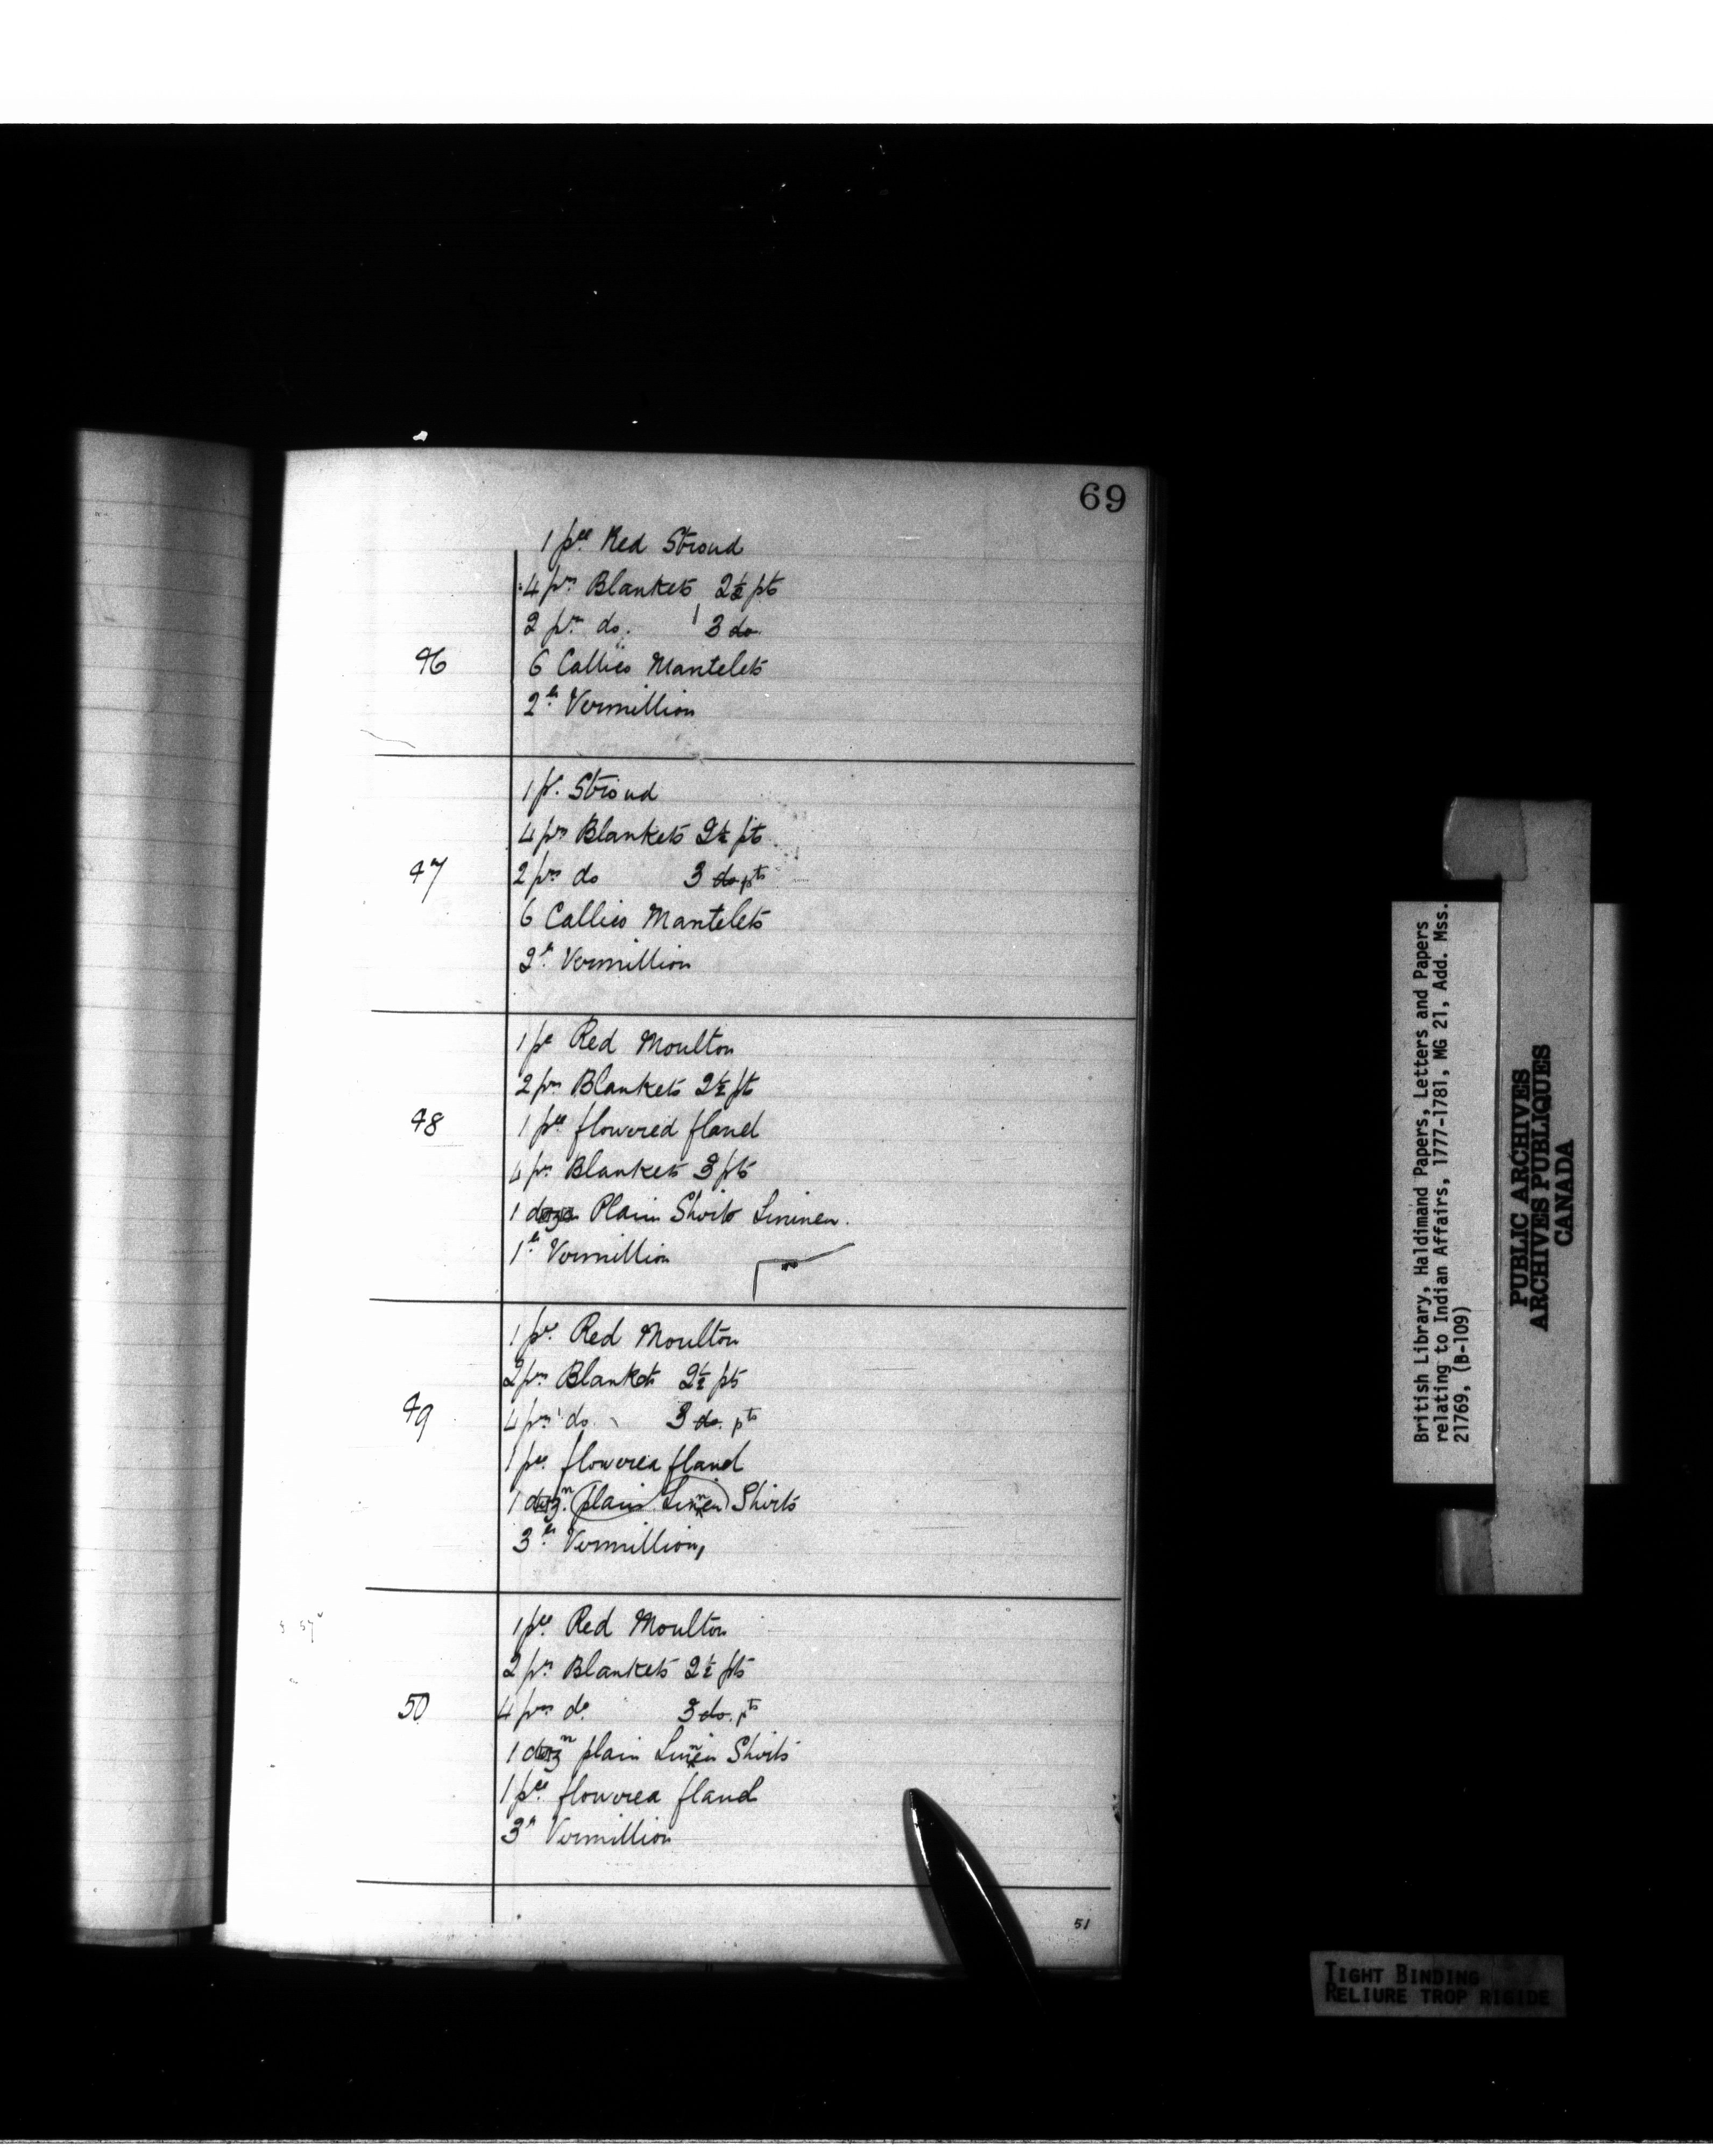 69
1 pce. Red Stroud
4 prs Blankets 2½ pts
2 prs do. 3 do.
46 6 Callico Mantelets
2 lb. Vermillion
1 p. Stroud
4 prs Blankets 2½ pts
47 2 prs do 3 do pts
6 Callico Mantelets
2 lb. Vermillion
1 pe Red Moulton
2 prs Blankets 2½ pts
48 1 pce flowered fland
4 prs Blankets 3 pts
1 dozn Plain Shirts Lininen.
1 lb Vermillion
1 pce. Red Moulton
2 prs Blankets 2½ pts
49 4 prs do. 3 do. pts
1 pce. flowered fland
1 dozn. plain Linen Shirts
3 lb. Vermillion,
1 pce. Red Moulton
2 prs. Blankets 2½ pts
50 4 prs do. 3 do. pts
1 dozn plain Linen Shirts
1 pce. flowered fland
3 lb Vermillion
51
British Library, Haldimand Papers, Letters and Papers
relating to Indian Affairs, 1777-1781, MG 21, Add. Mss.
21769, (B-109)
PUBLIC ARCHIVES
ARCHIVES PUBLIQUES
CANADA
TIGHT BINDING
RELIURE TROP RIGIDE